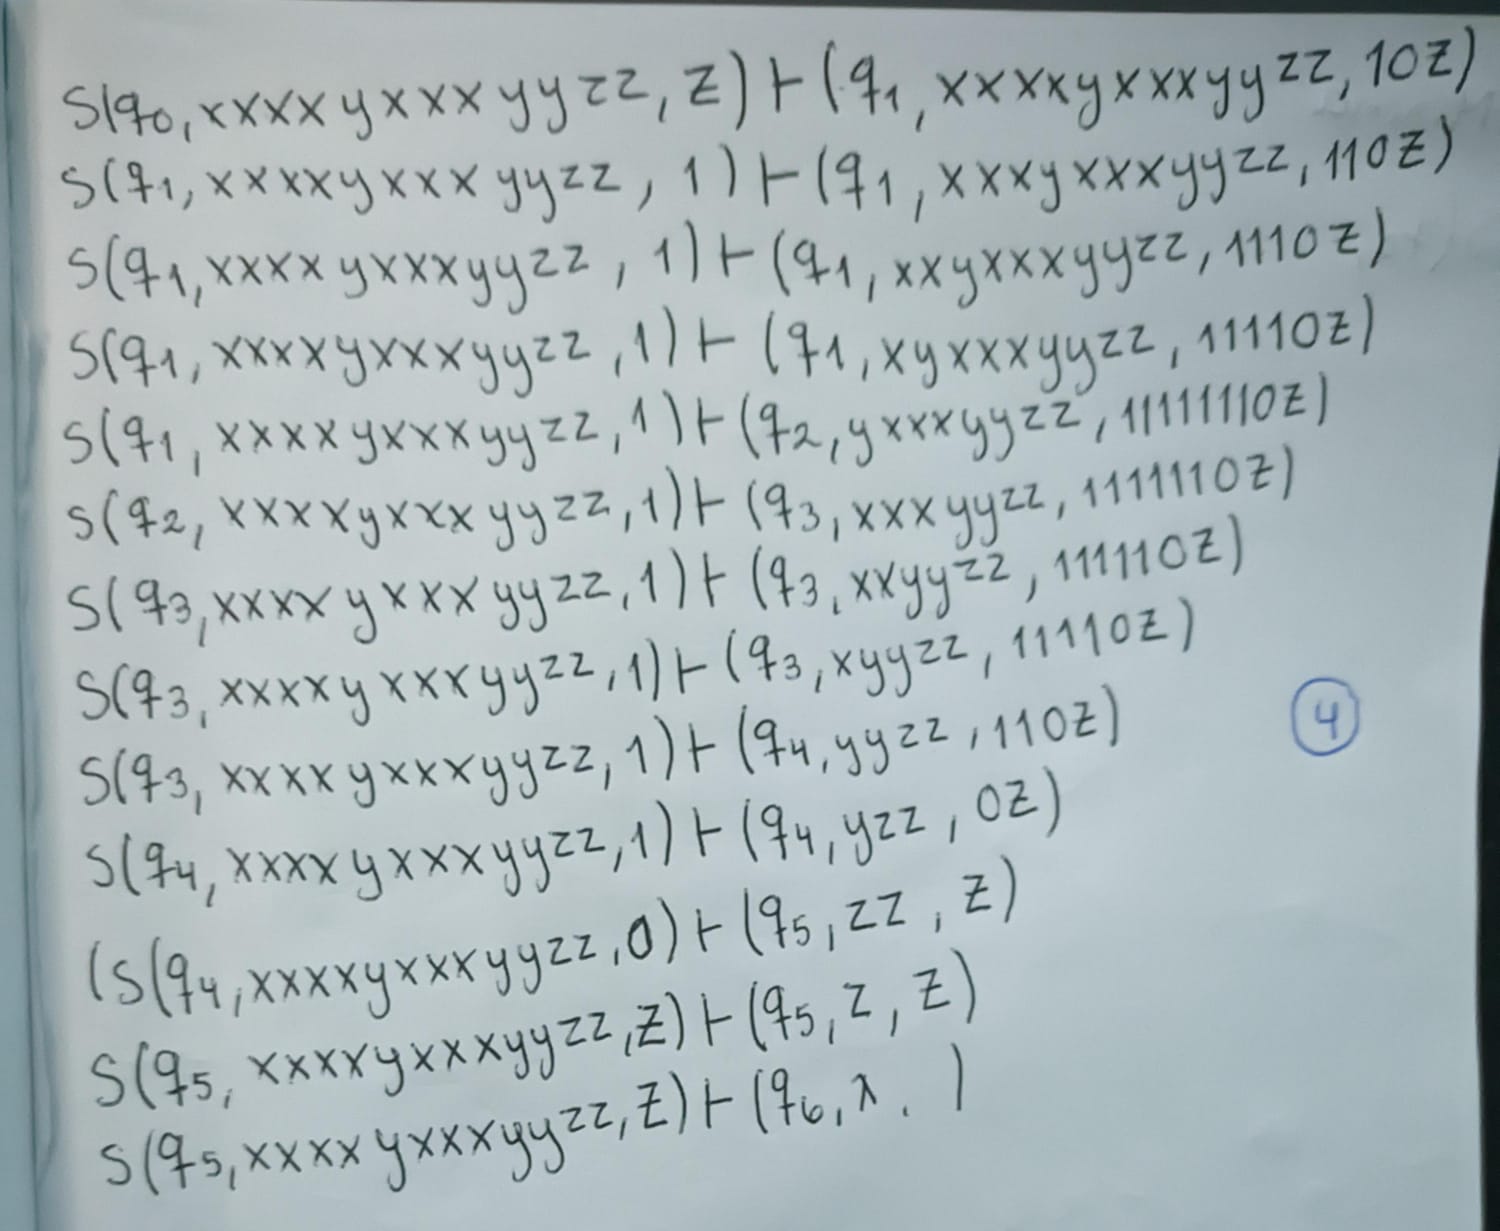 S(q₀, xxxxyxxxyyzz, Z) ⊢ (q₁, xxxxyxxxyyzz, 10Z)
S(q₁, xxxxyxxxyyzz, 1) ⊢ (q₁, xxxyxxxyyzz, 110Z)
S(q₁, xxxxyxxxyyzz, 1) ⊢ (q₁, xxyxxxyyzz, 1110Z)
S(q₁, xxxxyxxxyyzz, 1) ⊢ (q₁, xyxxxyyzz, 11110Z)
S(q₁, xxxxyxxxyyzz, 1) ⊢ (q₂, yxxxyyzz, 111111110Z)
S(q₂, xxxxyxxxyyzz, 1) ⊢ (q₃, xxxyyzz, 1111110Z)
S(q₃, xxxxyxxxyyzz, 1) ⊢ (q₃, xxyyzz, 111110Z)
S(q₃, xxxxyxxxyyzz, 1) ⊢ (q₃, xyyzz, 11110Z)
S(q₃, xxxxyxxxyyzz, 1) ⊢ (q₄, yyzz, 110Z)
4
S(q₄, xxxxyxxxyyzz, 1) ⊢ (q₄, yzz, 0Z)
(S(q₄, xxxxyxxxyyzz, 0) ⊢ (q₅, zz, Z)
S(q₅, xxxxyxxxyyzz, Z) ⊢ (q₅, z, Z)
S(q₅, xxxxyxxxyyzz, Z) ⊢ (q₆, λ, )